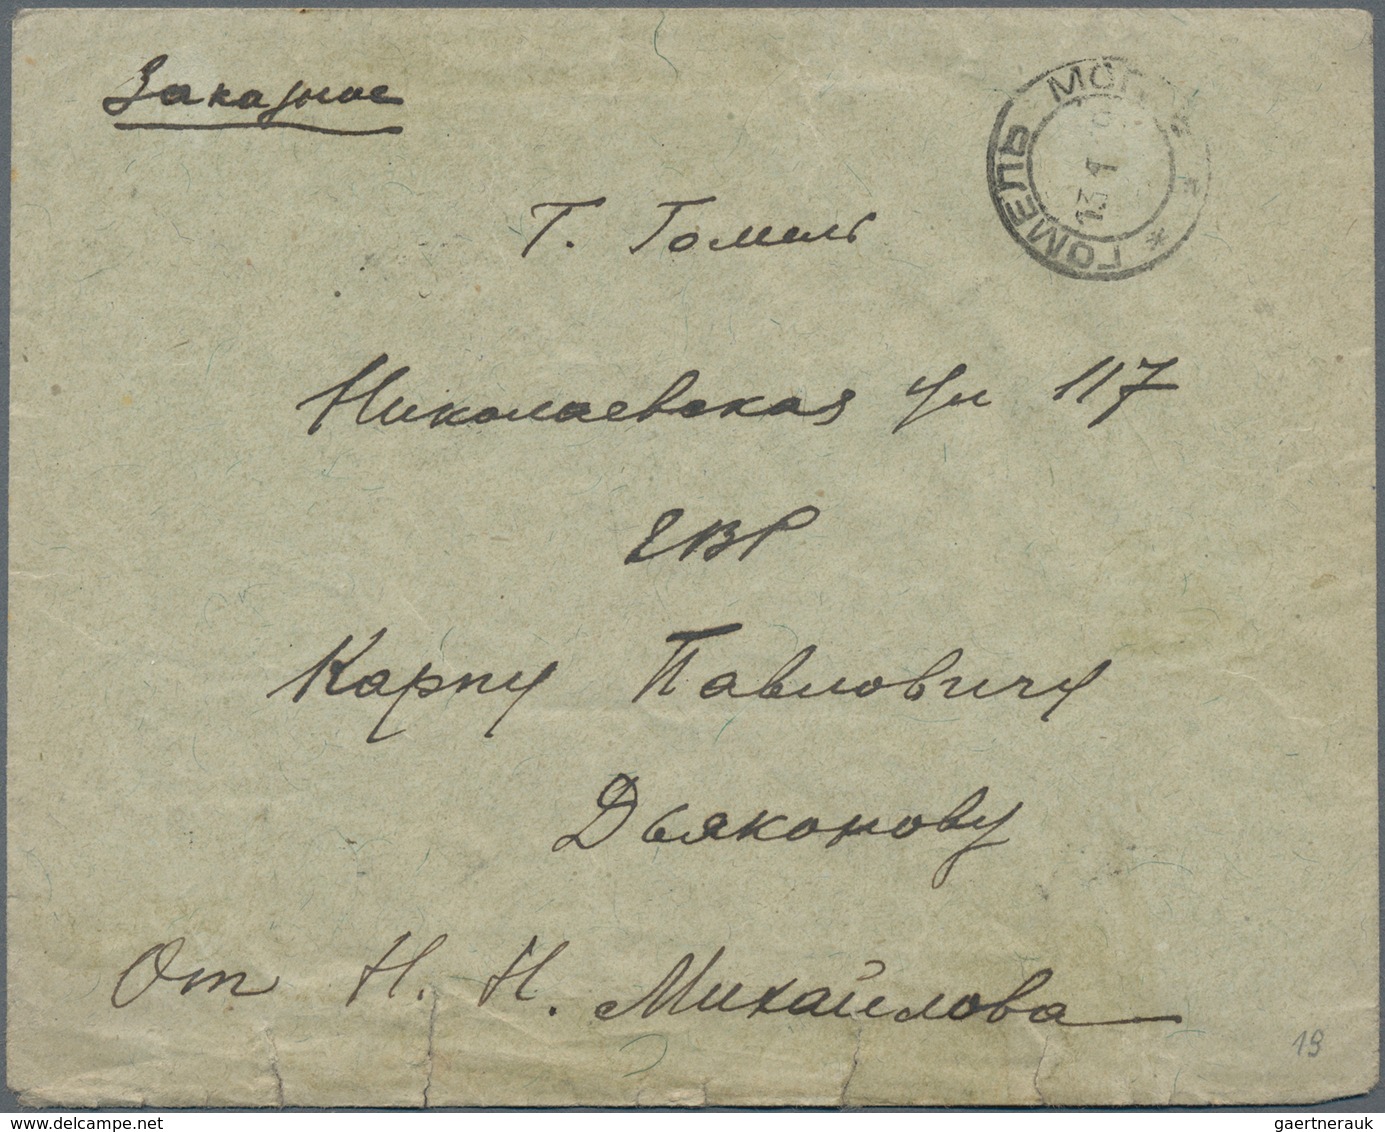 Заказное
ГОМЕЛЬ МОГ
13 1
Г. Гомель
Николаевская ул 117
Карпу Павловичу
Дьяконову
От Н. Н. Михайлова
19
gaertnerauk